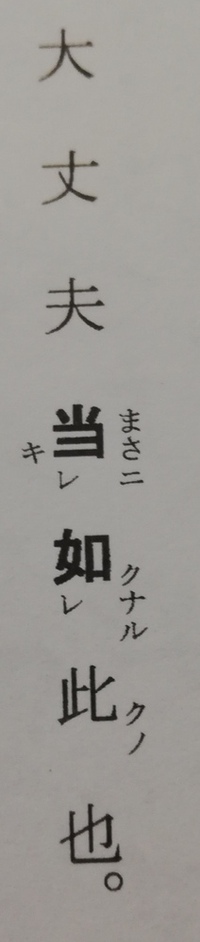 大丈夫当まさニキレ如クナルレ此クノ也。